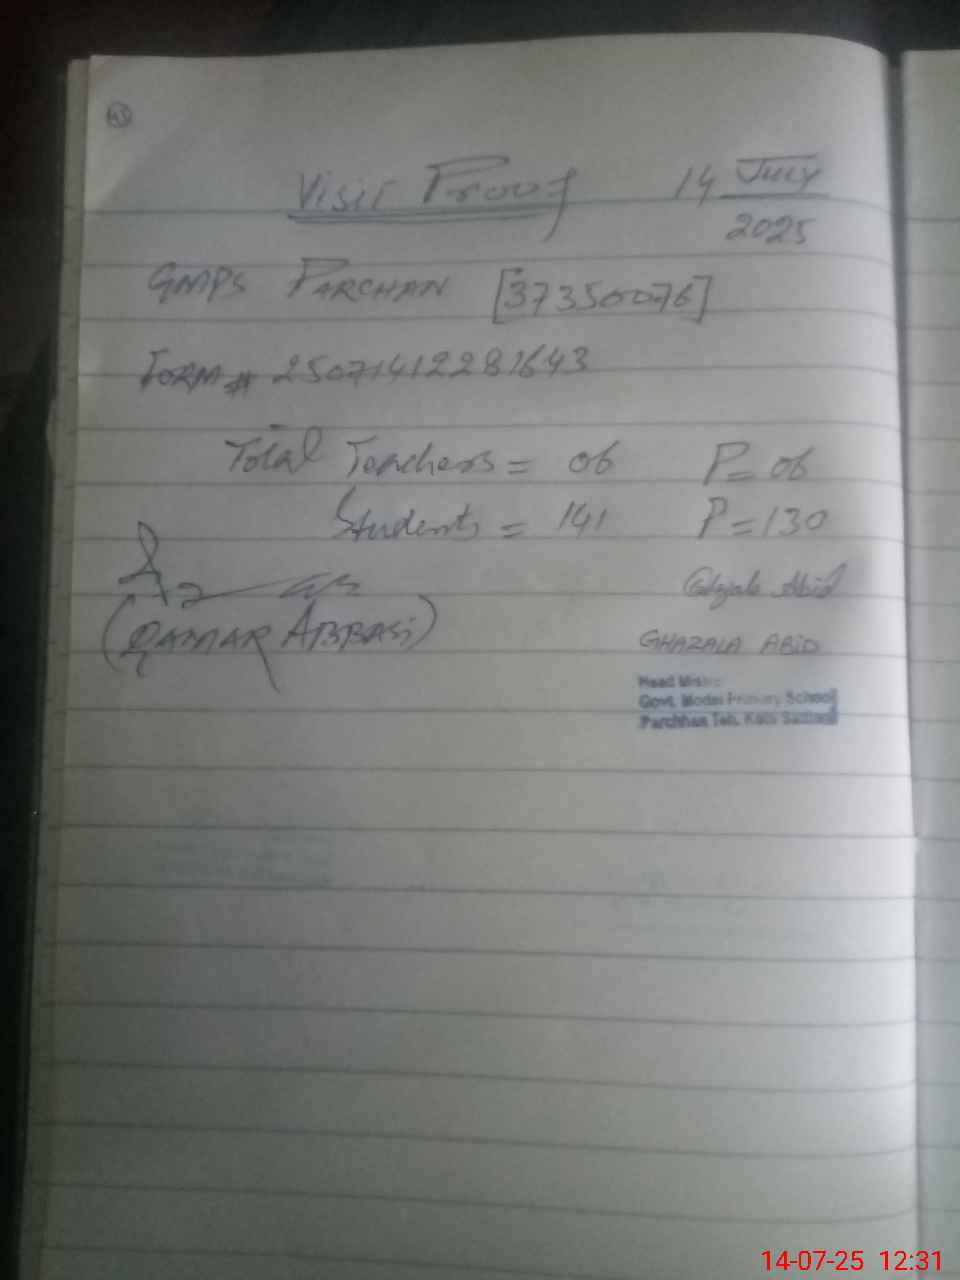 Visit Proof 14 July
2025
GMPS PARCHAN [37350076]
FORM # 25071412281643
Total Teachers = 06 P = 06
Students = 141 P = 130
(QAMAR ABBASI)
Ghazala Abid
GHAZALA ABID
Head
Govt. Model Primary School
Parchhan Teh.
14-07-25 12:31